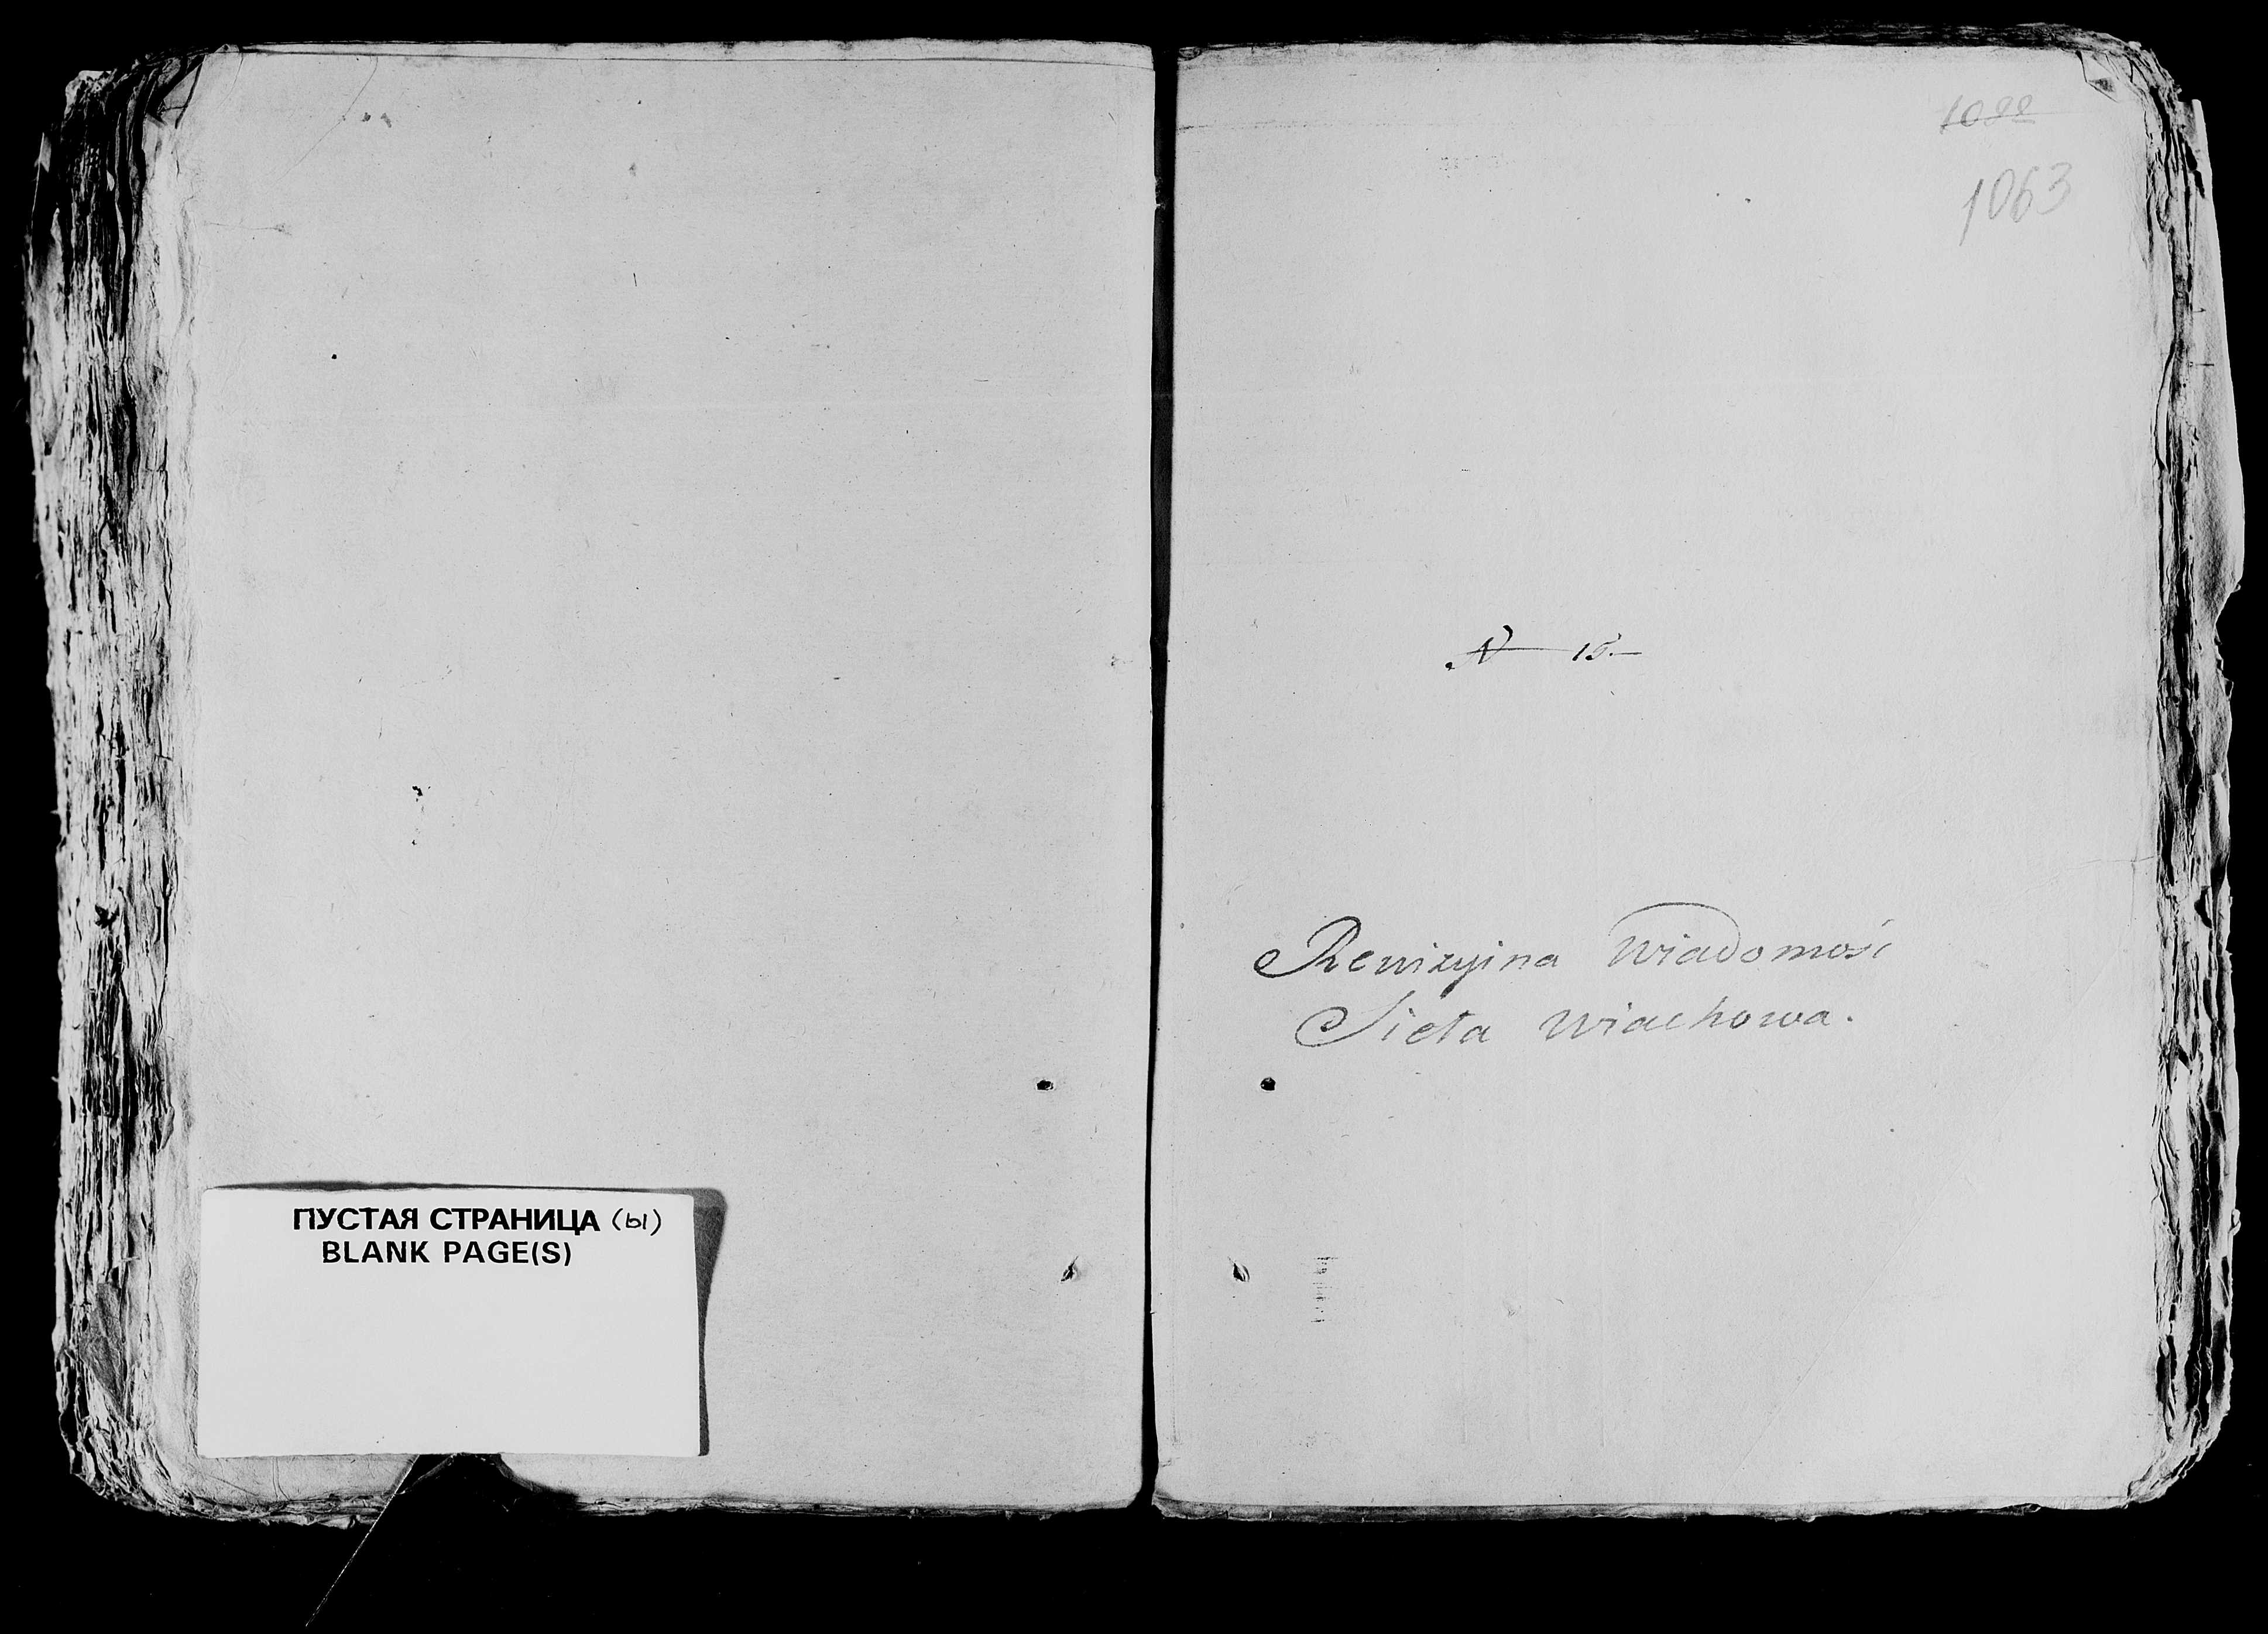 ПУСТАЯ СТРАНИЦА (ы)
BLANK PAGE(S)
1063
N 15.
Rewizyina Wiadomość
Sieła Wiachowa.